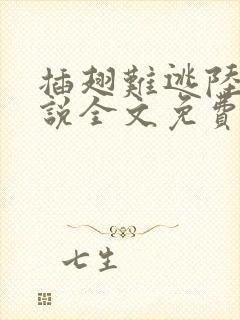 插翅難逃陸
說全文免費
七生